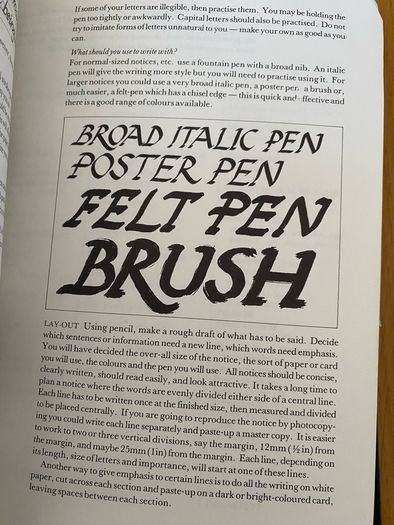 If some of your letters are illegible, then practise them. You may be holding the
pen too tightly or awkwardly. Capital letters should also be practised. Do not
try to imitate forms of letters unnatural to you — make your own as good as you
can.
What should you use to write with?
For normal-sized notices, etc. use a fountain pen with a broad nib. An italic
pen will give the writing more style but you will need to practise using it. For
larger notices you could use a very broad italic pen, a poster pen a brush or,
much easier, a felt-pen which has a chisel edge — this is quick and effective and
there is a good range of colours available.
BROAD ITALIC PEN
POSTER PEN
FELT PEN
BRUSH
LAY-OUT Using pencil, make a rough draft of what has to be said. Decide
which sentences or information need a new line, which words need emphasis.
You will have decided the over-all size of the notice, the sort of paper or card
you will use, the colours and the pen you will use. All notices should be concise,
clearly written, should read easily, and look attractive. It takes a long time to
plan a notice where the words are evenly divided either side of a central line.
Each line has to be written once at the finished size, then measured and divided
to be placed centrally. If you are going to reproduce the notice by photocopy-
ing you could write each line separately and paste-up a master copy. It is easier
to work to two or three vertical divisions, say the margin, 12mm (½ in) from
the margin, and maybe 25mm (1in) from the margin. Each line, depending on
its length, size of letters and importance, will start at one of these lines.
Another way to give emphasis to certain lines is to do all the writing on white
paper, cut across each section and paste-up on a dark or bright-coloured card,
leaving spaces between each section.